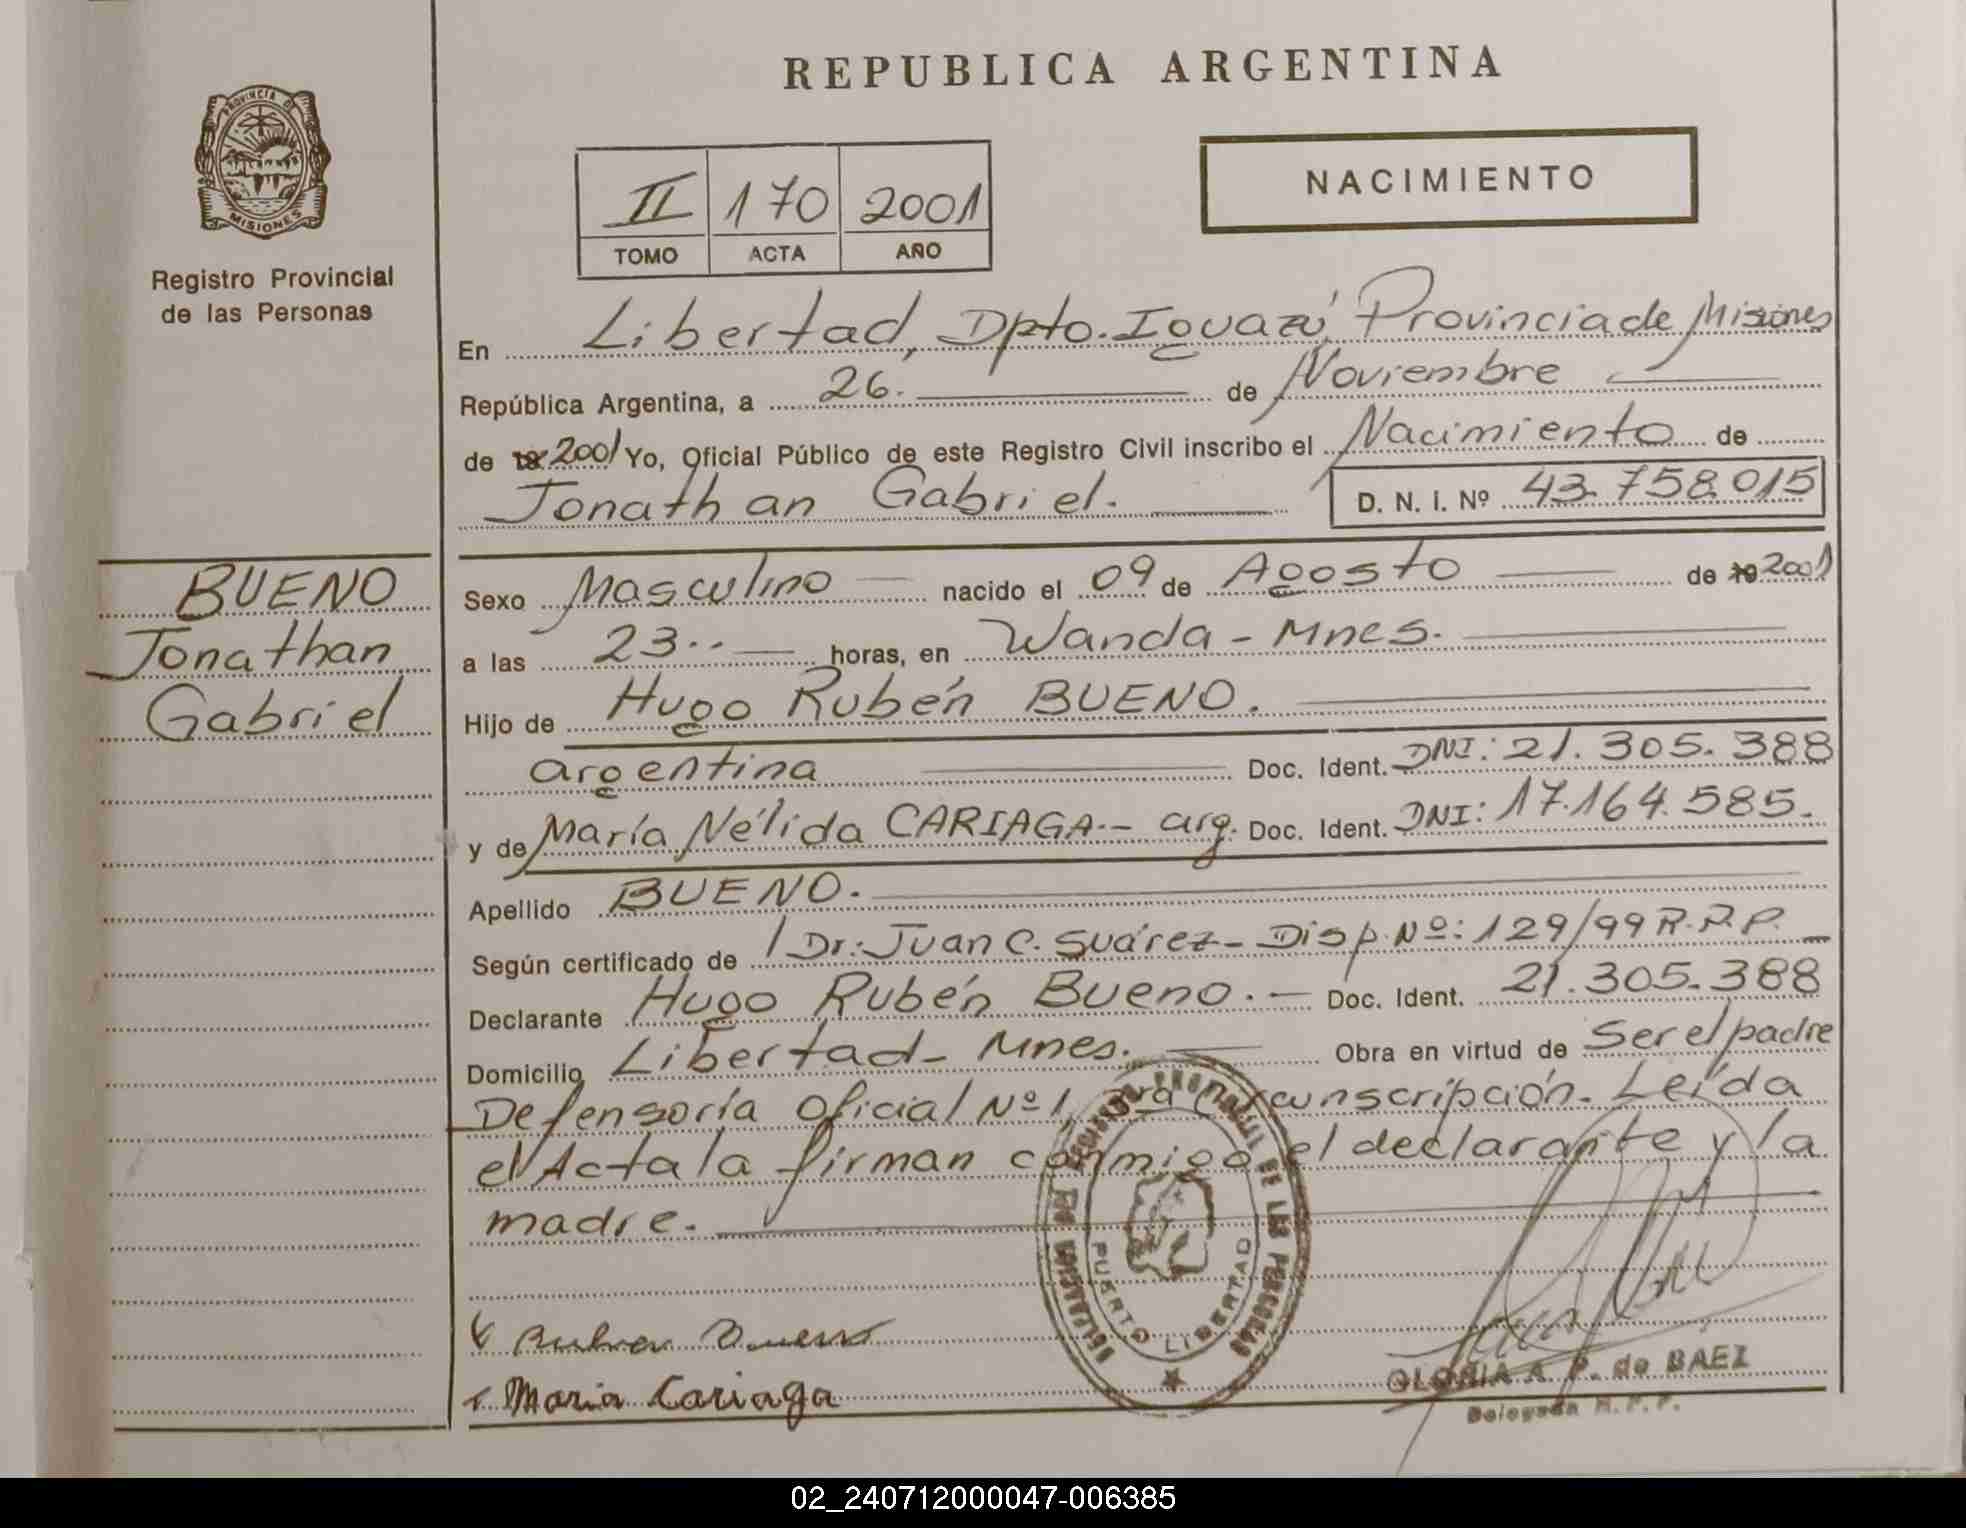 REPUBLICA ARGENTINA
PROVINCIA DE
MISIONES
Registro Provincial
de las Personas
II 170 2001
TOMO ACTA AÑO
NACIMIENTO
En Libertad, Dpto. Iguazú Provincia de Misiones
República Argentina, a 26. de Noviembre
de 2001 Yo, Oficial Público de este Registro Civil inscribo el Nacimiento de
Jonathan Gabriel.
D. N. I. Nº 43.758.015
BUENO
Jonathan
Gabriel
Sexo Masculino nacido el 09 de Agosto de 2001
a las 23.. horas, en Wanda - Mnes.
Hijo de Hugo Rubén BUENO.
argentina Doc. Ident. DNI: 21.305.388
y de María Nélida CARIAGA.- arg. Doc. Ident. DNI: 17.164.585.
Apellido BUENO.
Según certificado de Dr.: Juan C. Suárez - Disp. Nº: 129/99 R.P.P.
Declarante Hugo Rubén Bueno. - Doc. Ident. 21.305.388
Domicilio Libertad - Mnes. Obra en virtud de Ser el padre
Defensoría Oficial Nº 1, 3ra Circunscripción. Leída
el Acta la firman conmigo el declarante y la
madre.
PUERTO LIBERTAD
Maria Cariaga
GLORIA A. P. de BAEZ
Delegada R. P. P.
02_240712000047-006385